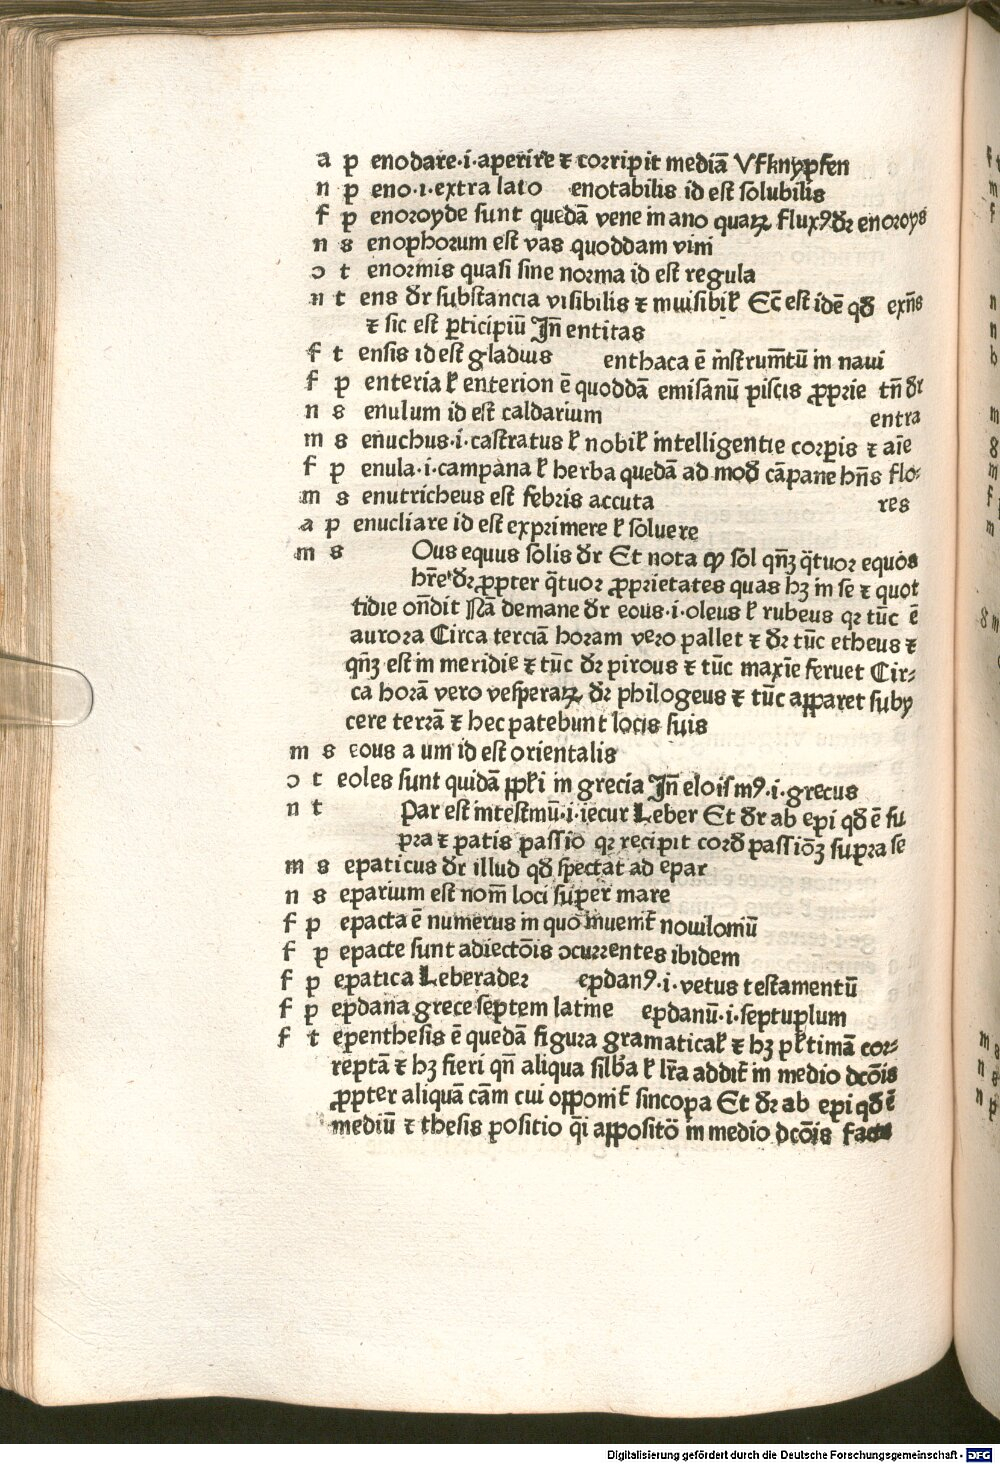 a p enodare·i·aperire ⁊ corripit mediā Vfknypfen
n p eno·i·extra lato enotabilis id est solubilis
f p enoroyde sunt quedā vene in ano quaꝝ fluxꝰ dr̄ enoroys
n s enophorum est vas quoddam vini
ↄ t enormis quasi sine norma id est regula
n t ens dr̄ substancia visibilis ⁊ inuisibil̓ Ec̄ est idē qd̓ exn̄s
⁊ sic est ꝑticipiū Jn̄ entitas
f t ensis id est gladius enthaca ē instrum̄tū in naui
f p enteria l̓ enterion ē quoddā emisanū piscis ꝓprie tn̄ dr̄
n s enulum id est caldarium entra
m s enuchus·i·castratus l̓ nobil̓ intelligentie corꝑis ⁊ aīe
f p enula·i·campana l̓ herba quedā ad mod̓ cāpane hn̄s flo⸗
m s enutricheus est febris accuta res
a p enucliare id est exprimere l̓ soluere
m s Ous equus solis dr̄ Et nota ꝙ sol qn̄ꝫ q̄tuor equos
hr̄e dr̄ ꝓpter q̄tuor ꝓprietates quas hꝫ in se ⁊ quot
tidie on̄dit Nā demane dr̄ eous·i·oleus l̓ rubeus qr tūc ē
aurora Circa terciā horam vero pallet ⁊ dr̄ tūc etheus ⁊
qn̄ꝫ est in meridie ⁊ tūc dr̄ pirous ⁊ tūc maxīe feruet Cir⸗
ca horā vero vesperaꝝ dr̄ philogeus ⁊ tūc apparet suby
cere terrā ⁊ hec patebunt locis suis
m s eous a um id est orientalis
ↄ t eoles sunt quidā ppl̓i in grecia Jn̄ eloismꝰ·i·grecus
n t Par est intestinū·i·iecur Leber Et dr̄ ab epi qd̓ ē su
pra ⁊ patis passio qr recipit cord̓ passiōꝫ supra se
m s epaticus dr̄ illud qd̓ spectat ad epar
n s eparium est nom̄ loci super mare
f p epacta ē numerus in quo inuenit̄ nouiloniū
f p epacte sunt adiectōis ↄcurrentes ibidem
f p epatica Leberader epdanꝰ·i·vetus testamentū
f p epdana grece septem latine epdanū·i·septuplum
f t epenthesis ē quedā figura gramatical̓ ⁊ hꝫ pl̓timā cor⸗
reptā ⁊ hꝫ fieri qn̄ aliqua silba l̓ lr̄a addit̄ in medio dcōis
ꝓpter aliquā cām cui opponit̄ sincopa Et dr̄ ab epi qd̓ ē
mediū ⁊ thesis positio q̄i appositō in medio dcōis
Digitalisierung gefördert durch die Deutsche Forschungsgemeinschaft - DFG